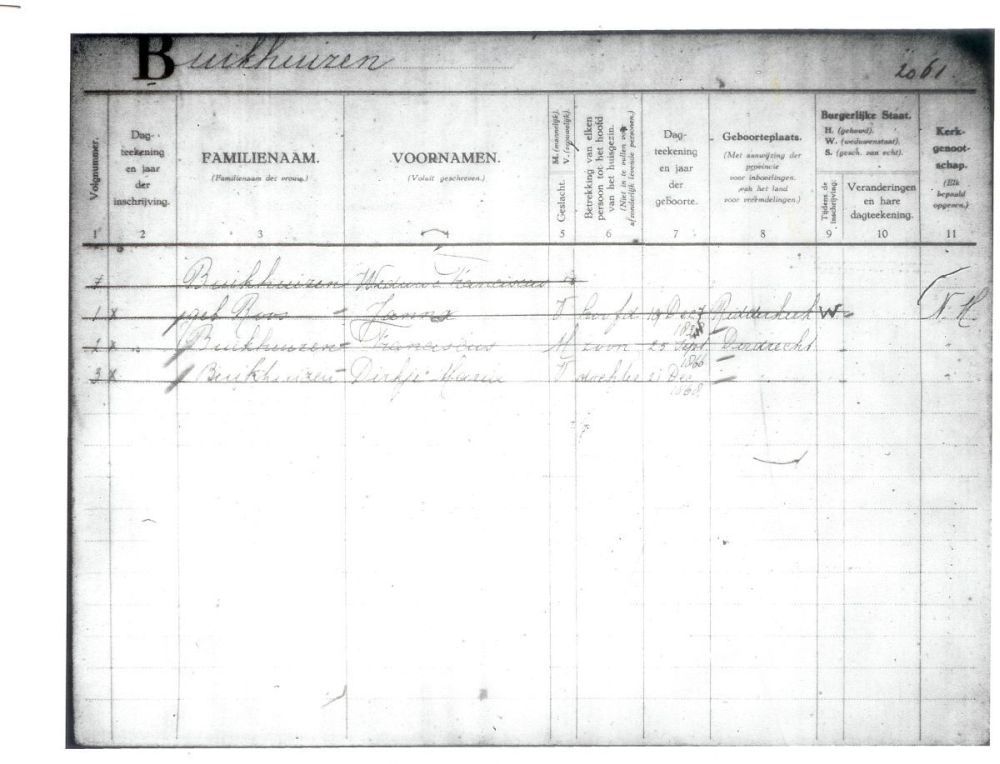 Buikhuizen 2061
Volgnummer.
Dag-
teekening
en jaar
der
inschrijving.
FAMILIENAAM.
(Familienaam der vrouw.)
VOORNAMEN.
(Voluit geschreven.)
Geslacht. M. (mannelijk). V. (vrouwelijk).
Betrekking van elken
persoon tot het hoofd
van het huisgezin.
(Niet in te vullen voor
afzonderlijk levende personen.)
Dag-
teekening
en jaar
der
geboorte.
Geboorteplaats.
(Met aanwijzing der
provincie
voor inboorlingen,
van het land
voor vreemdelingen.)
Burgerlijke Staat.
H. (gehuwd).
W. (weduwenstaat).
S. (gesch. van echt).
Tijdens de
inschrijving.
Veranderingen
en hare
dagteekening.
Kerk-
genoot-
schap.
(Elk
bepaald
opgeven.)
1 2 3 4 5 6 7 8 9 10 11
Buikhuizen Weduwe Franciscus
1 x geb Roos Janna V hoofd Dec Ridderkerk W N.H.
2 x Buikhuizen Franciscus M zoon 25 Sept 1866 Dordrecht
3 x Buikhuizen Dirkje Maria V dochter 21 Dec 1868